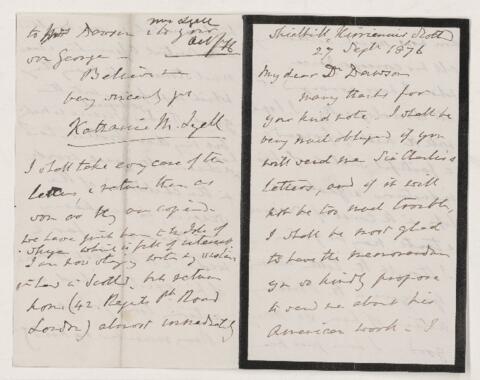 Shielhill, Kirriemuir, Scotd
27 Septr 1876
My dear Dr Dawson
many thanks for
your kind note. I shall be
very much obliged if you
will send me Sir Charles's
letters, and if it will
not be too much trouble,
I shall be most glad
to have the memorandum
you so kindly propose
to send me about his
American work - I
to Mrs Dawson & to your
son George
Believe me
very sincerely yrs
Katharine M. Lyell
I shall take every care of the
letters & return them as
soon as they are copied.
we have just been to the Isle of
Skye which is full of interest.
I am now staying with my
in Law in Scotd, but return
home (42, Regents Pk Road
London) almost immediately
Mrs Lyell
Oct /76